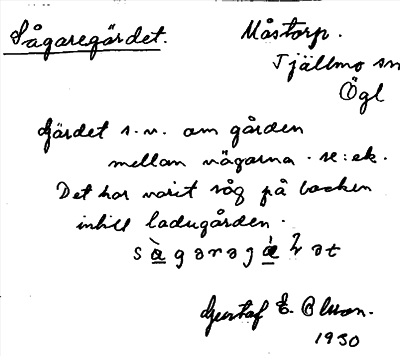 Sågaregärdet.
Måstorp.
Tjällmo sn
Ögl
Gärdet s.v. om gården
mellan vägarna. se: ek.
Det har varit såg på backen
intill ladugården.
Gustaf E. Olsson.
1930